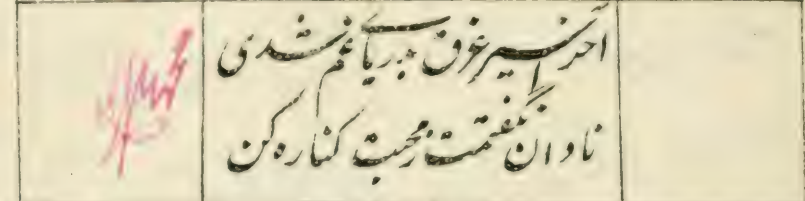 آخر اسیر غرق بدریای غم شدی
نادان نگفتمت ز محبت کناره کن